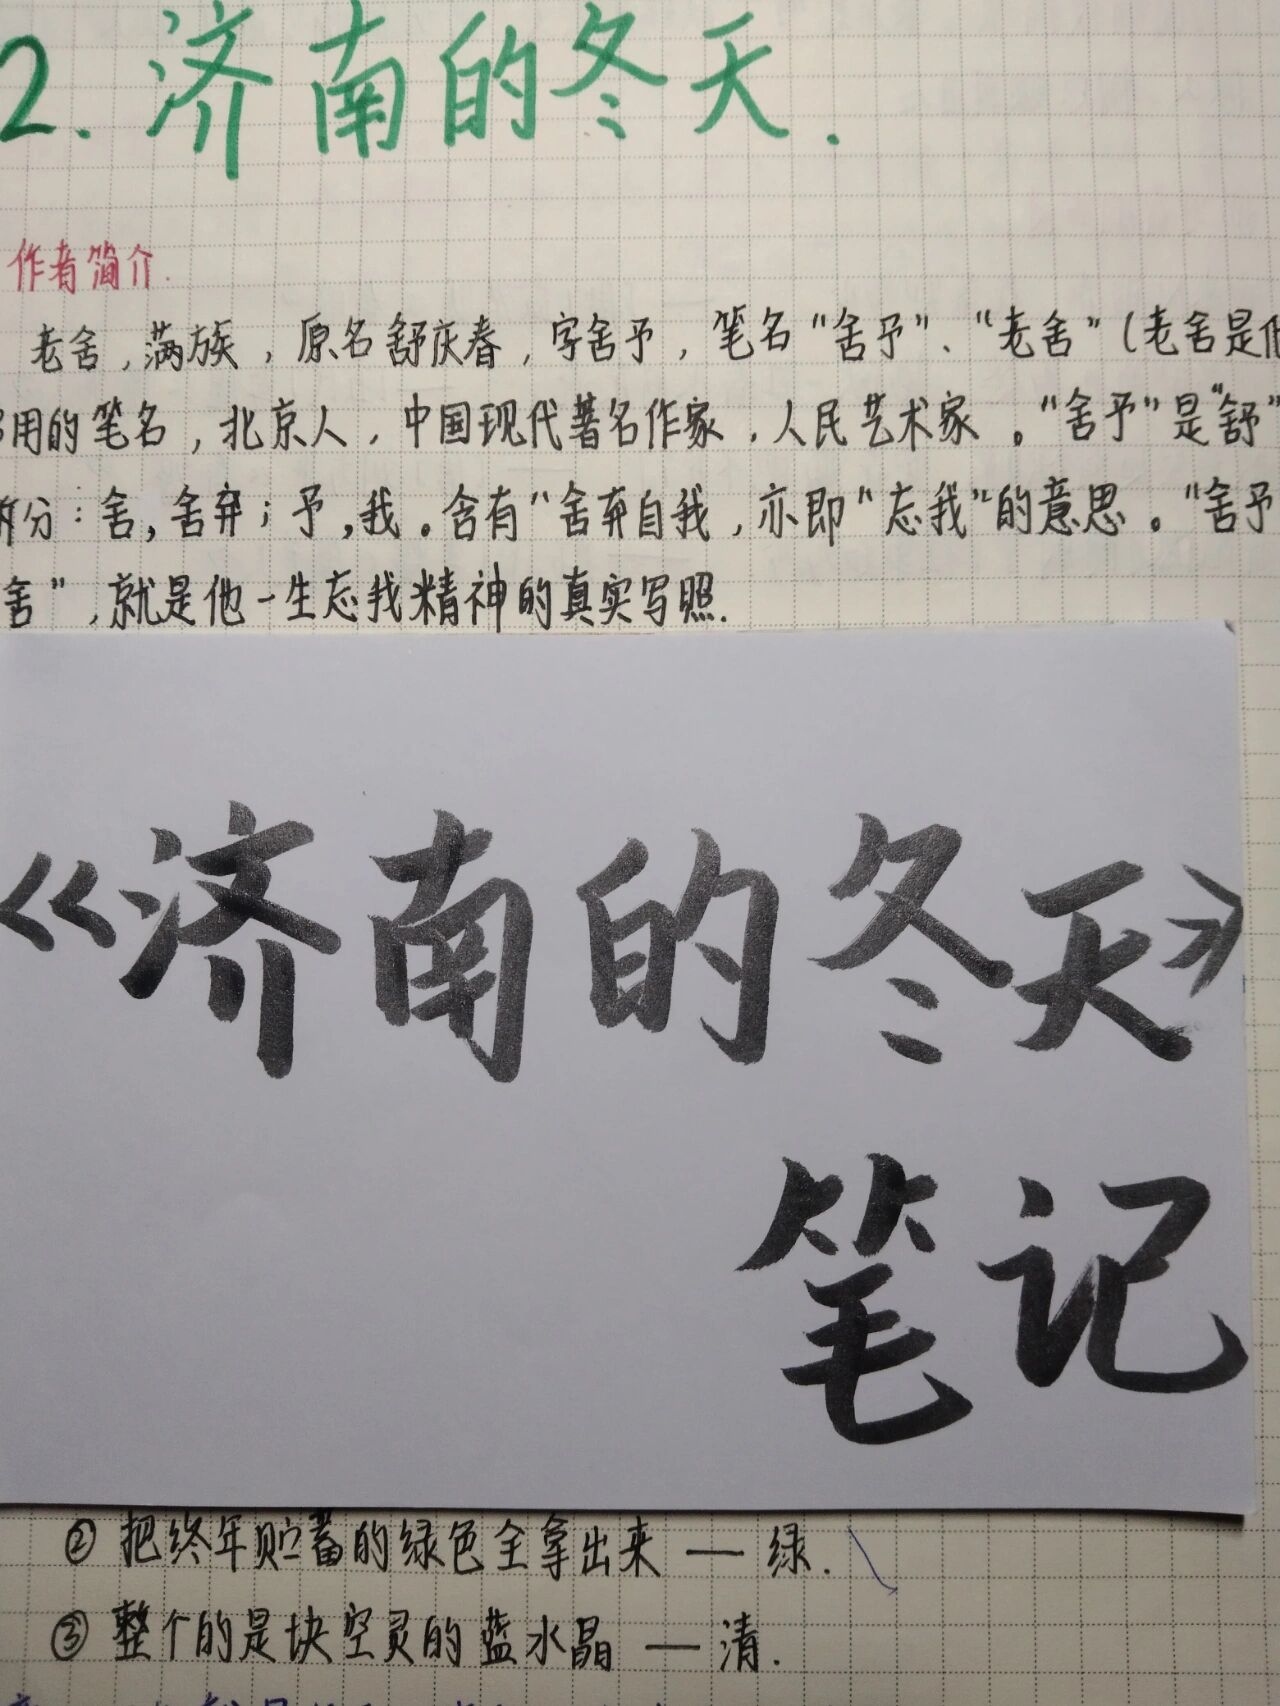 2.济南的冬天.
作者简介.
老舍,满族,原名舒庆春,字舍予,笔名"舍予"、"老舍"(老舍是
用的笔名,北京人,中国现代著名作家,人民艺术家。"舍予"是"舒"
分:舍,舍弃;予,我。含有"舍弃自我,亦即"忘我"的意思。"舍予
舍",就是他一生忘我精神的真实写照.
《济南的冬天》
笔记
② 把终年贮蓄的绿色全拿出来 — 绿.
③ 整个的是块空灵的蓝水晶 — 清.